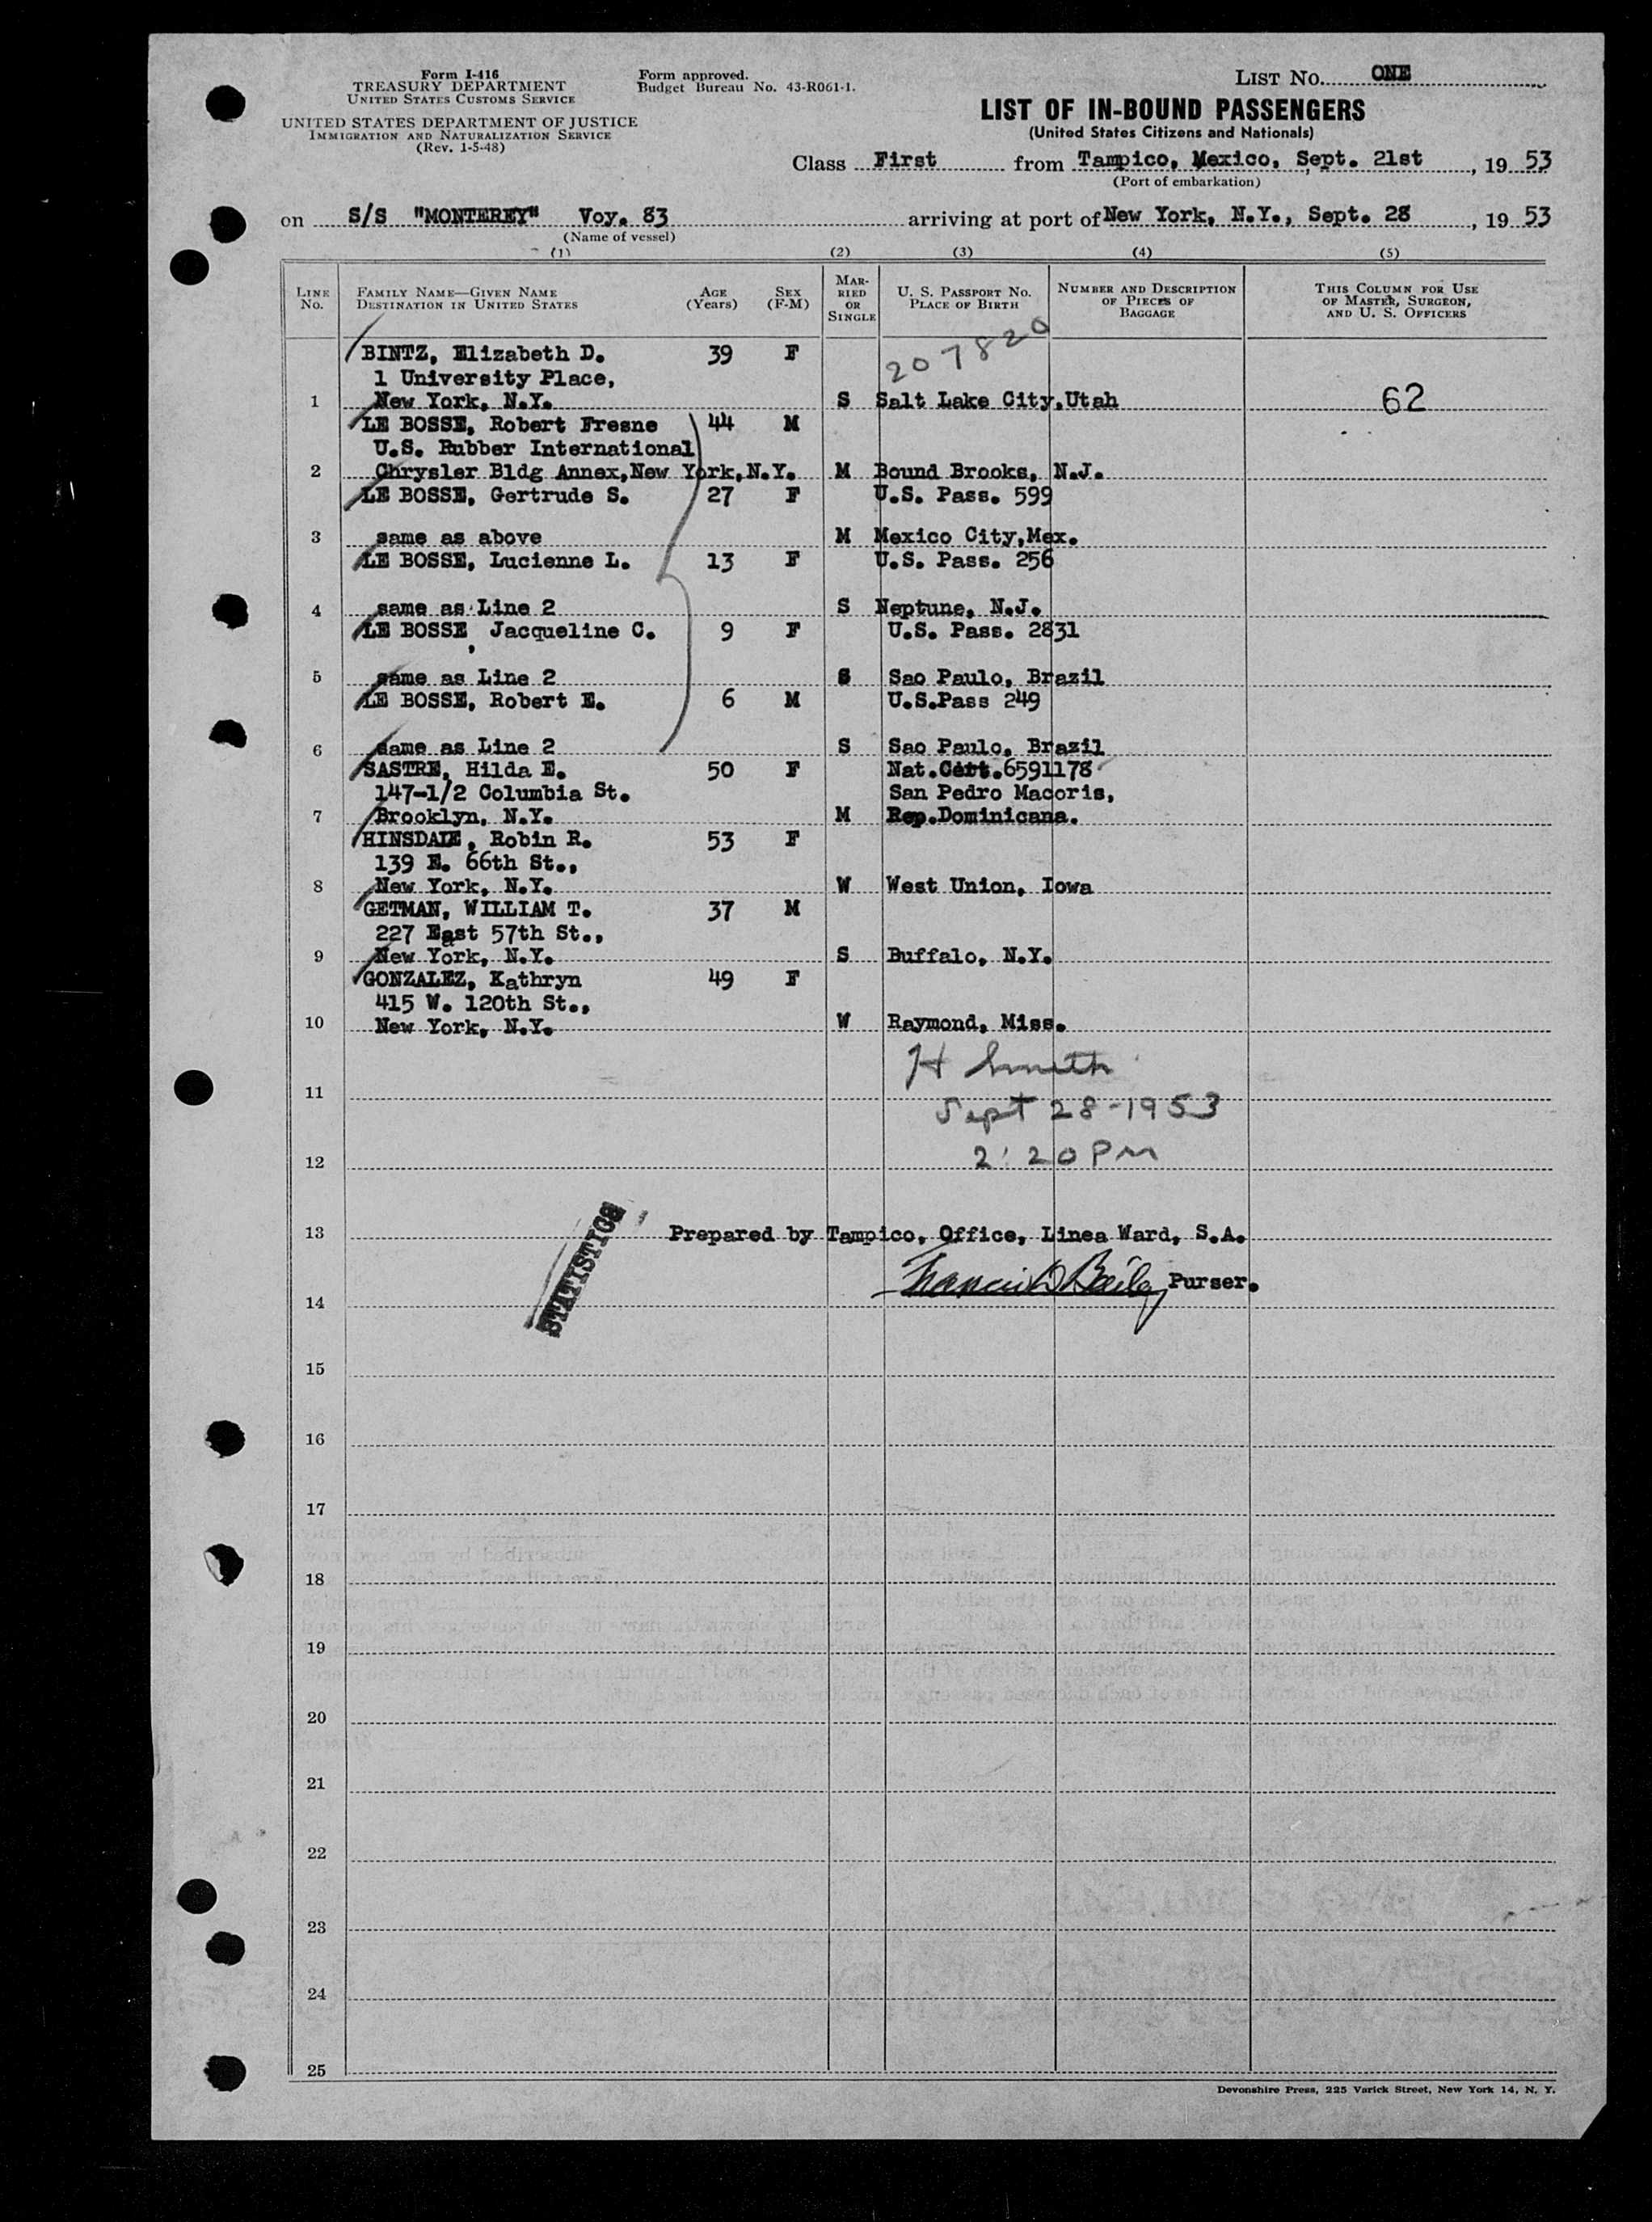 Form I-416
TREASURY DEPARTMENT
UNITED STATES CUSTOMS SERVICE
UNITED STATES DEPARTMENT OF JUSTICE
IMMIGRATION AND NATURALIZATION SERVICE
(Rev. 1-5-48)
Form approved.
Budget Bureau No. 43-R061-1.
LIST NO. ONE
LIST OF IN-BOUND PASSENGERS
(United States Citizens and Nationals)
Class First from Tampico, Mexico, Sept. 21st, 19 53
(Port of embarkation)
on S/S "MONTEREY" Voy. 83 arriving at port of New York, N.Y., Sept. 28, 19 53
(Name of vessel)
(1) (2) (3) (4) (5)
LINE NO. FAMILY NAME—GIVEN NAME DESTINATION IN UNITED STATES AGE (YEARS) SEX (F-M) MARRIED OR SINGLE U. S. PASSPORT NO. PLACE OF BIRTH NUMBER AND DESCRIPTION OF PIECES OF BAGGAGE THIS COLUMN FOR USE OF MASTER, SURGEON, AND U. S. OFFICERS
BINTZ, Elizabeth D. 39 F 207820
1 University Place,
1 New York, N.Y. S Salt Lake City, Utah 62
LE BOSSE, Robert Fresne 44 M
U.S. Rubber International
2 Chrysler Bldg Annex, New York, N.Y. M Bound Brooks, N.J.
LE BOSSE, Gertrude S. 27 F U.S. Pass. 599
3 same as above M Mexico City, Mex.
LE BOSSE, Lucienne L. 13 F U.S. Pass. 256
4 same as Line 2 S Neptune, N.J.
LE BOSSE, Jacqueline C. 9 F U.S. Pass. 2831
5 same as Line 2 S Sao Paulo, Brazil
LE BOSSE, Robert E. 6 M U.S.Pass 249
6 same as Line 2 S Sao Paulo, Brazil
SASTRE, Hilda E. 50 F Nat.Cert.6591178
147-1/2 Columbia St. San Pedro Macoris,
7 Brooklyn, N.Y. M Rep.Dominicana.
HINSDALE, Robin R. 53 F
139 E. 66th St.,
8 New York, N.Y. W West Union, Iowa
GETMAN, WILLIAM T. 37 M
227 East 57th St.,
9 New York, N.Y. S Buffalo, N.Y.
GONZALEZ, Kathryn 49 F
415 W. 120th St.,
10 New York, N.Y. W Raymond, Miss.
H Smith
11
Sept 28-1953
2:20 PM
12
STATISTICS
13 Prepared by Tampico, Office, Linea Ward, S.A.
Francis D Baily Purser.
14
15
16
17
18
19
20
21
22
23
24
25
Devonshire Press, 225 Varick Street, New York 14, N. Y.